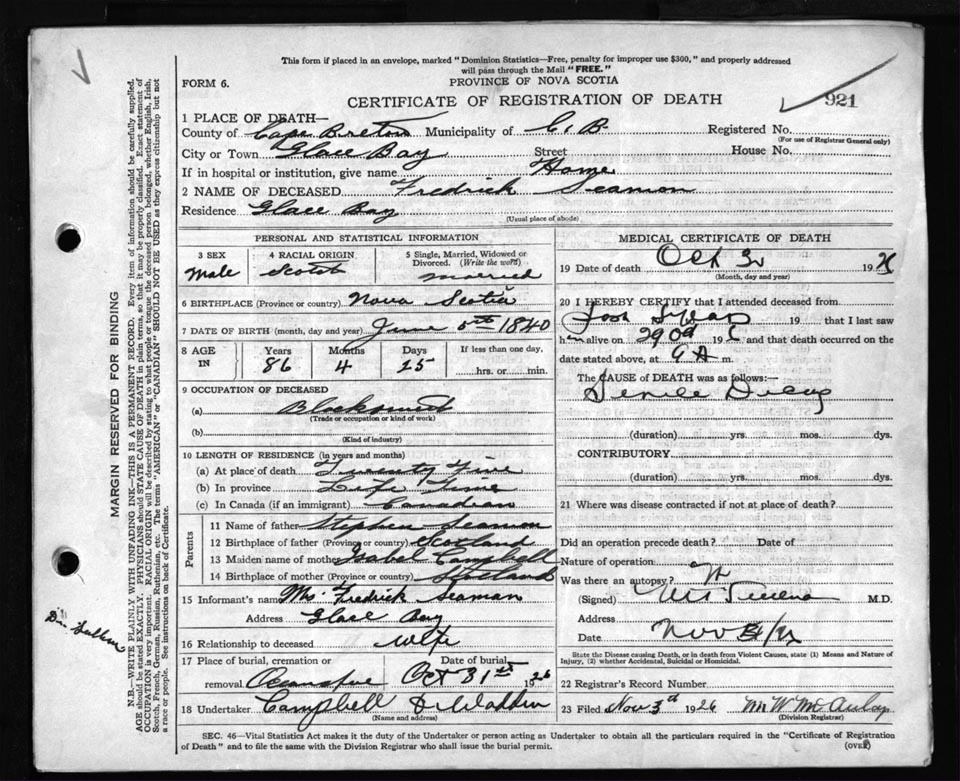 This form if placed in an envelope, marked "Dominion Statistics—Free, penalty for improper use $300," and properly addressed
will pass through the Mail "FREE."
FORM 6.
PROVINCE OF NOVA SCOTIA
CERTIFICATE OF REGISTRATION OF DEATH
921
1 PLACE OF DEATH—
County of Cape Breton Municipality of C. B. Registered No.
(For use of Registrar General only)
City or Town Glace Bay Street House No.
If in hospital or institution, give name Home
2 NAME OF DECEASED Fredrick Seamon
Residence Glace Bay
(Usual place of abode)
PERSONAL AND STATISTICAL INFORMATION
3 SEX
Male
4 RACIAL ORIGIN
Scotch
5 Single, Married, Widowed or
Divorced. (Write the word)
married
6 BIRTHPLACE (Province or country) Nova Scotia
7 DATE OF BIRTH (month, day and year) June 5th 1840
8 AGE IN
Years Months Days If less than one day,
86 4 25 hrs. or min.
9 OCCUPATION OF DECEASED
(a) Blacksmith
(Trade or occupation or kind of work)
(b)
(Kind of industry)
10 LENGTH OF RESIDENCE (in years and months)
(a) At place of death Twenty Five
(b) In province Life Time
(c) In Canada (if an immigrant) Canadian
Parents
11 Name of father Stephen Seamon
12 Birthplace of father (Province or country) Scotland
13 Maiden name of mother Isabel Campbell
14 Birthplace of mother (Province or country) Scotland
15 Informant's name Mrs. Fredrick Seaman
Address Glace Bay
16 Relationship to deceased wife
17 Place of burial, cremation or
removal Date of burial
Oct 31st 1926
18 Undertaker Campbell
(Name and address)
MEDICAL CERTIFICATE OF DEATH
19 Date of death Oct 19
(Month, day and year)
20 I HEREBY CERTIFY that I attended deceased from
19 that I last saw
h alive on 19 and that death occurred on the
date stated above, at 6 A m.
The CAUSE OF DEATH was as follows:—
Senile
(duration) yrs. mos. dys.
CONTRIBUTORY
(duration) yrs. mos. dys.
21 Where was disease contracted if not at place of death?
Did an operation precede death? Date of
Nature of operation
Was there an autopsy?
(Signed) M.D.
Address
Date Nov
State the Disease causing Death, or in death from Violent Causes, state (1) Means and Nature of
Injury, (2) whether Accidental, Suicidal or Homicidal.
22 Registrar's Record Number
23 Filed Nov 3rd 1926
(Division Registrar)
SEC. 46—Vital Statistics Act makes it the duty of the Undertaker or person acting as Undertaker to obtain all the particulars required in the "Certificate of Registration
of Death" and to file the same with the Division Registrar who shall issue the burial permit.
(OVER)
MARGIN RESERVED FOR BINDING
N.B.—WRITE PLAINLY WITH UNFADING INK—THIS IS A PERMANENT RECORD. Every item of information should be carefully supplied.
AGE should be stated EXACTLY. PHYSICIANS should STATE CAUSE OF DEATH in plain terms, so that it may be properly classified. Exact statement of
OCCUPATION is very important. RACIAL ORIGIN will be described by stating to what people or tongue the deceased person belonged, whether English, Irish,
Scotch, French, German, Russian, Ruthenian, etc. The terms "AMERICAN" or "CANADIAN" SHOULD NOT BE USED as they express citizenship but not
a race or people. See instructions on back of Certificate.